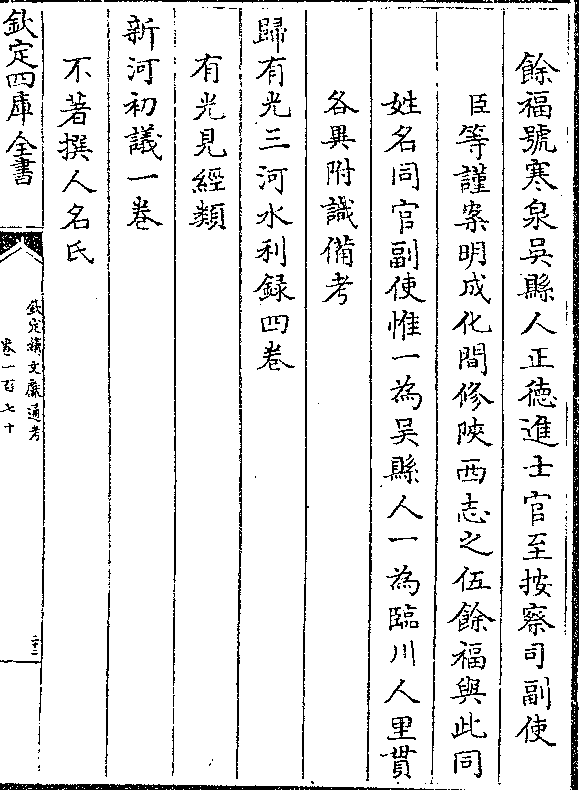 餘福號寒泉吳縣人正德進士官至按察司副使
臣等謹案明成化間修陜西志之伍餘福與此同
姓名同官副使惟一為吳縣人一為臨川人里貫
各異附識備考
歸有光三河水利録四卷
有光見經類
新河初議一卷
不著撰人名氏
欽定四庫全書
欽定續文獻通考
卷一百七十
二十二